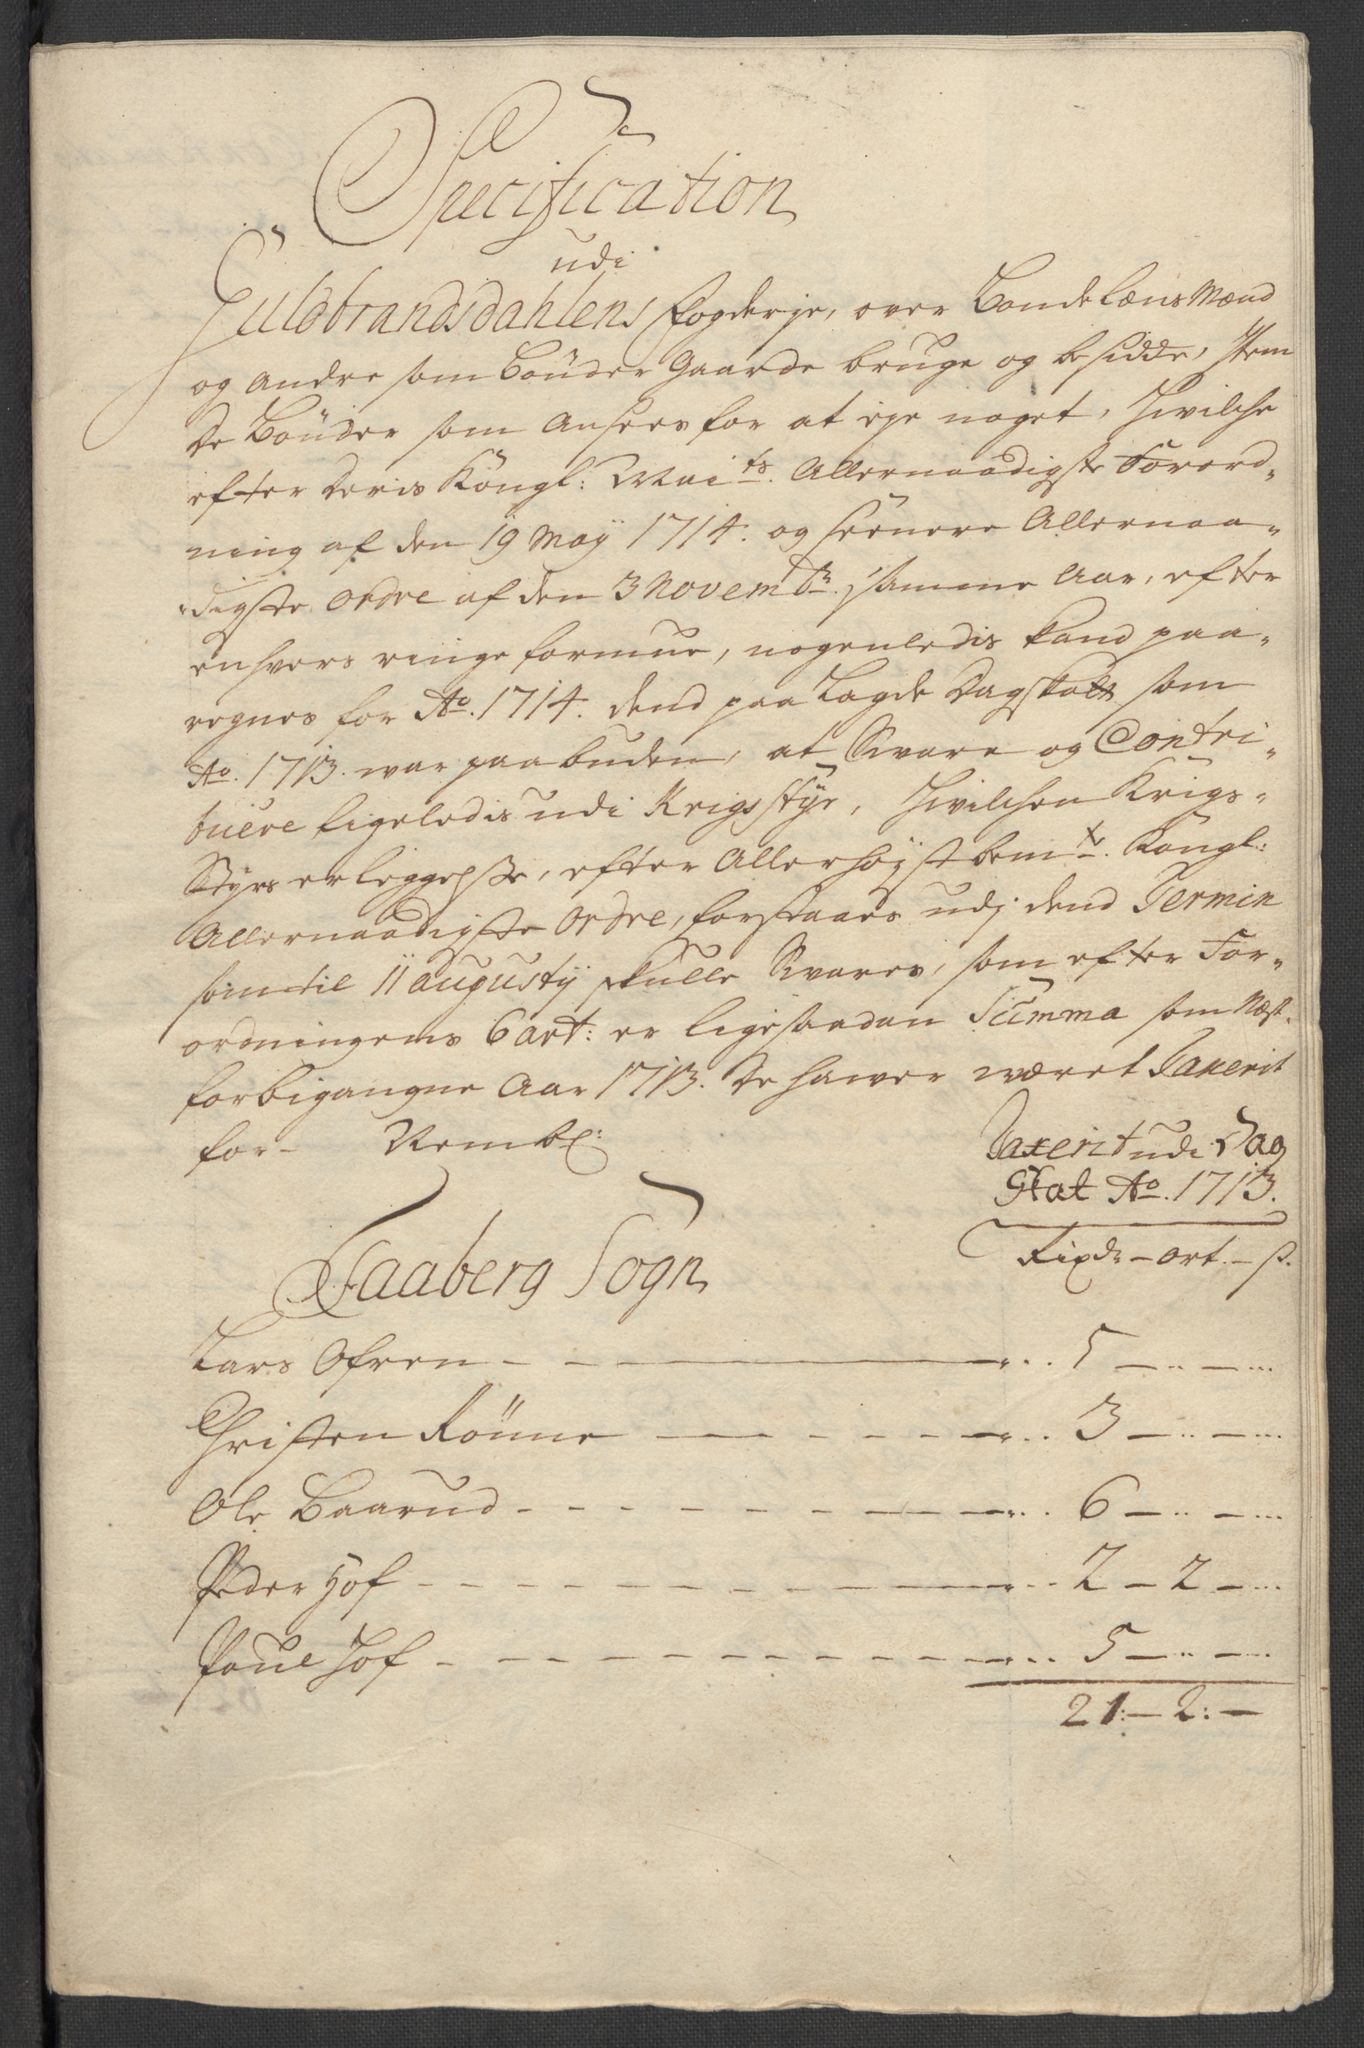 Specification
udi
Guldbrandsdahlens fogderje, over Bondelænsmænd
og andre som bönder gaarde bruge og besidde, Item
de bönder som ansees for at eje noget, hvilche
efter deris Kongl: Maits. Allernaadigste Forord-
ning af den 19 Maÿ 1714. og seenere Allernaa-
digste ordre af den 3 Novembr. samme aar, efter
enhvers ringe formue, nogenledis kand paa-
regnes for Ao. 1714. dend paa Lagde Dagskatt som
Ao. 1713. war paabuden, at Svare og Contri-
buere ligeledis udi Krigsstyr, hvilchen Krigs-
Styrs erleggelsse, efter Allerhöyst bemte. Kongl:
Allernaadigste ordre, forstaaes udj dend Termin
som til 11 augustÿ skulle Svares, som efter For-
ordningens 6 art: er ligesaadan Summa som Næst-
forbigangne Aar 1713. de hawer wæret Taxerit
for- Nembl:
Taxerit udi Dag
Skat Ao. 1713.
Rixdr - ort. - s.
Faaberg Sogn
Lars Ofren - - 5 - .. - ...
Christen Rönne - - 3 - .. - ...
Ole Baarud - - 6 - .. - ...
Peder Hof - - 2 - 2 - ...
Poul Hof - - 5 - .. - ...
21: - 2: -